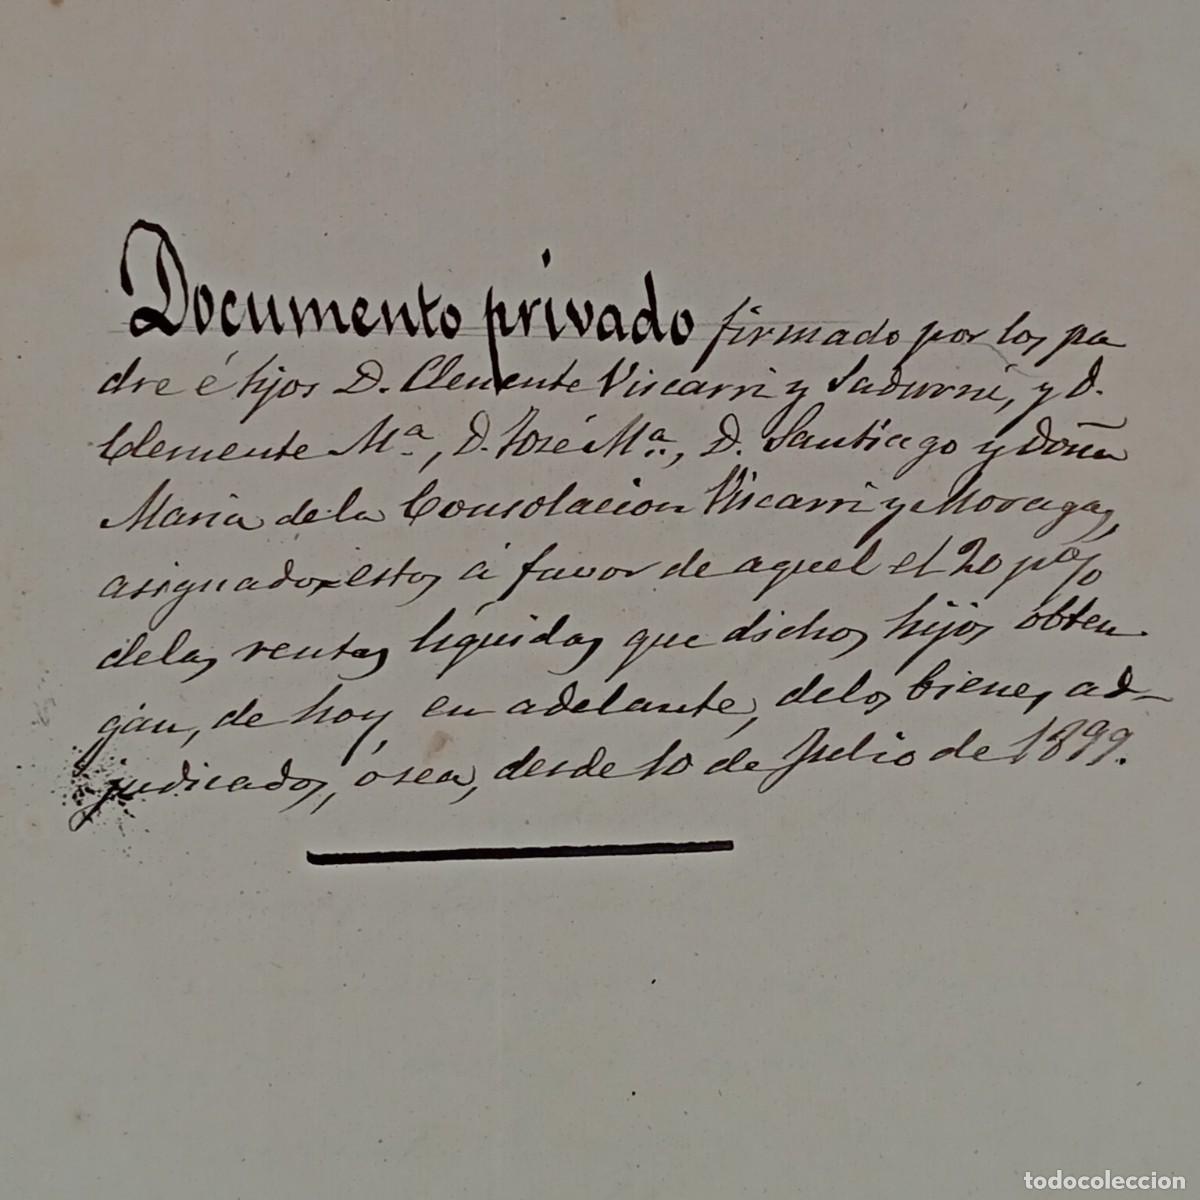 Documento privado firmado por los pa
dre é hijos D. Clemente Viscarri y Sadurní, y D.
Clemente Mª, D. José Mª, D. Santiago y Doña
Maria de la Consolacion Viscarri y Moragas,
asignados estos á favor de aquel el 20 p%
delas rentas líquidas que dichos hijos obten-
gan, de hoy en adelante, delos bienes ad-
judicados, ó sea, desde 10 de Julio de 1899.
todocoleccion